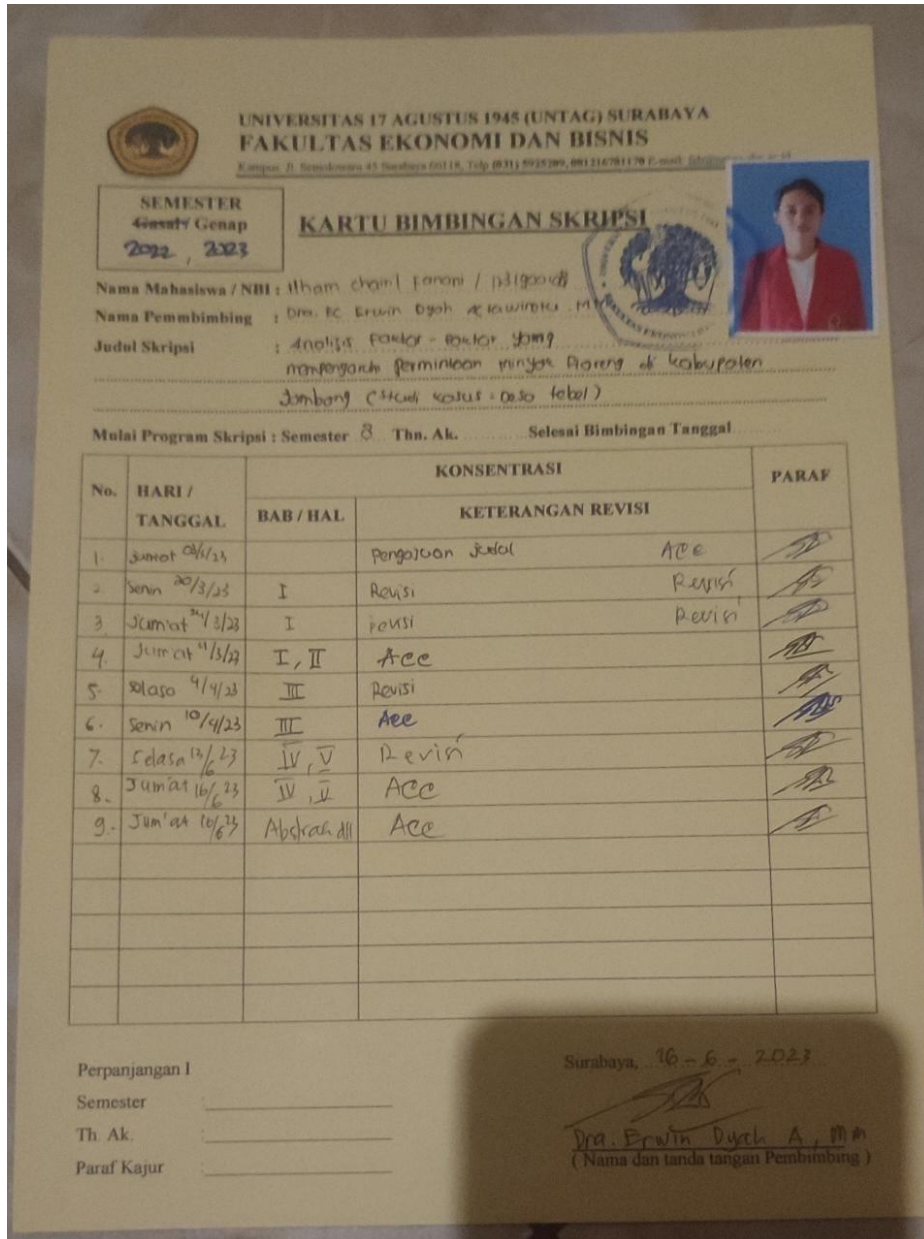 UNIVERSITAS 17 AGUSTUS 1945 (UNTAG) SURABAYA
FAKULTAS EKONOMI DAN BISNIS
Kampus: Jl. Semolowaru 45 Surabaya 60118, Telp (031) 5925289, 081216781170 E-mail:
SEMESTER
Gasal/ Genap
2022, 2023
KARTU BIMBINGAN SKRIPSI
Nama Mahasiswa / NBI : Ilham chairil Fanani /
Nama Pemmbimbing : Dra. EC Erwin Dyah MM
Judul Skripsi : Analisis Faktor - Faktor yang
mempengaruhi permintaan minyak Goreng di kabupaten
Jombang (Studi kasus : Desa tebel)
Mulai Program Skripsi : Semester 8 Thn. Ak. Selesai Bimbingan Tanggal
KONSENTRASI
No. HARI / TANGGAL BAB / HAL KETERANGAN REVISI PARAF
1. Jumat /23 Pengajuan Judul ACC
2. Senin 20/3/23 I Revisi Revisi
3. Jum'at 24/3/23 I revisi Revisi
4. Jum'at /3/23 I, II Acc
5. selasa 4/4/23 III Revisi
6. Senin 10/4/23 III Acc
7. Selasa 13/6 23 IV, V Revisi
8. Jum'at 16/6 23 IV, V ACC
9. Jum'at 16/6 23 Abstrak dll ACC
Perpanjangan I
Semester :
Th. Ak. :
Paraf Kajur :
Surabaya, 16 - 6 - 2023
Dra. Erwin Dyah A, MM
( Nama dan tanda tangan Pembimbing )